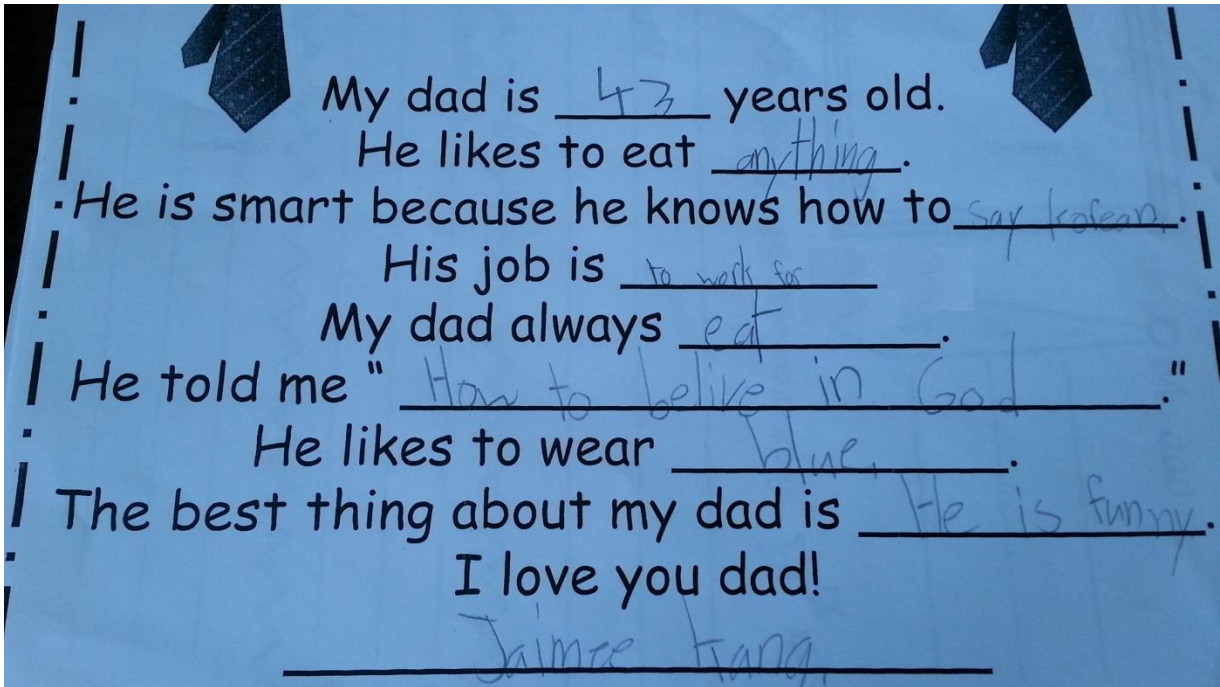 My dad is 43 years old.
He likes to eat anything.
He is smart because he knows how to say korean.
His job is to work for
My dad always eat.
He told me "How to belive in God."
He likes to wear blue..
The best thing about my dad is He is funny.
I love you dad!
Jaimee Kang.